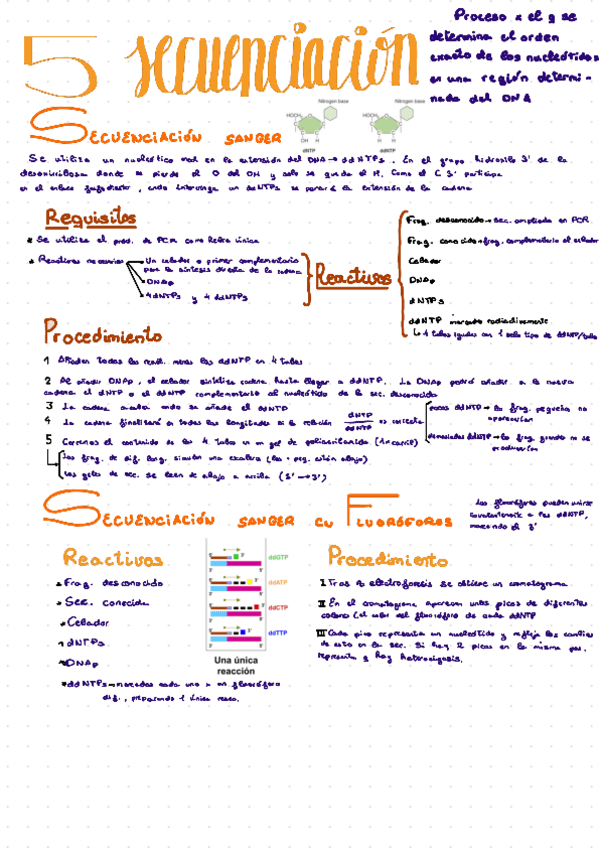 5 Secuenciación
Proceso x el q se
determina el orden
exacto de los nucleótidos
en una región determi-
nada del DNA
SECUENCIACIÓN SANGER
Nitrogen base
Nitrogen base
HOCH₂
HOCH₂
OH H
H H
dNTP
ddNTP
Se utiliza un nucleótido mod en la extensión del DNA → ddNTPs. En el grupo hidroxilo 3' de la
desoxirribosa donde se pierde el O del OH y solo se queda el H. Como el C 3' participa
en el enlace fosfodiester, cndo intervenga un ddNTPs se parará la extensión de la cadena
Requisitos
Se utiliza el prod. de PCR como hebra única
Reactivos necesarios
Un cebador o primer complementario
para la síntesis directa de la cadena
DNAp
4 dNTPs y 4 ddNTPs
Reactivos
Frag. desconocido → Sec. ampliada en PCR
Frag. conocido → frag. complementario al cebador
Cebador
DNAp
dNTPs
ddNTP marcado radiactivamente
4 tubos iguales con 1 solo tipo de ddNTP/tubo
Procedimiento
1 Añaden todos los react. menos los ddNTP en 4 tubos
2 Al añadir DNAp, el cebador sintetiza cadena hasta llegar a ddNTP. La DNAp podrá añadir a la nueva
cadena el dNTP o el ddNTP complementario al nucleótido de la sec. desconocida
3 La cadena acaba cndo se añade el ddNTP
4 La cadena finalizará a todas las longitudes si la relación dNTP/ddNTP es correcta
pocos ddNTP → los frag. pequeños no
aparecerían
demasiados ddNTP → los frag. grandes no se
producirían
5 Corremos el contenido de los 4 tubos en un gel de poliacrilamida (4 carril)
Los frag. de dif. long. simulan una escalera (los + peq. están abajo)
Los geles de sec. se leen de abajo a arriba (5' → 3')
SECUENCIACIÓN SANGER CN FLUORÓFOROS
Los fluoróforos pueden unirse
covalentemente a los ddNTP,
marcando el 3'
Reactivos
Frag. desconocido
Sec. conocida
Cebador
dNTPs
DNAp
ddNTPs → marcados cada uno x un fluoróforo
dif., preparando 1 única reacc.
ddGTP
ddATP
ddCTP
ddTTP
Una única
reacción
Procedimiento
I Tras la electroforesis se obtiene un cromatograma
II En el cromatograma aparecen unos picos de diferentes
colores (el color del fluoróforo de cada ddNTP
III Cada pico representa un nucleótido y refleja los cambios
de esto en la sec. Si hay 2 picos en la misma pos.
representa q hay heterocigosis.